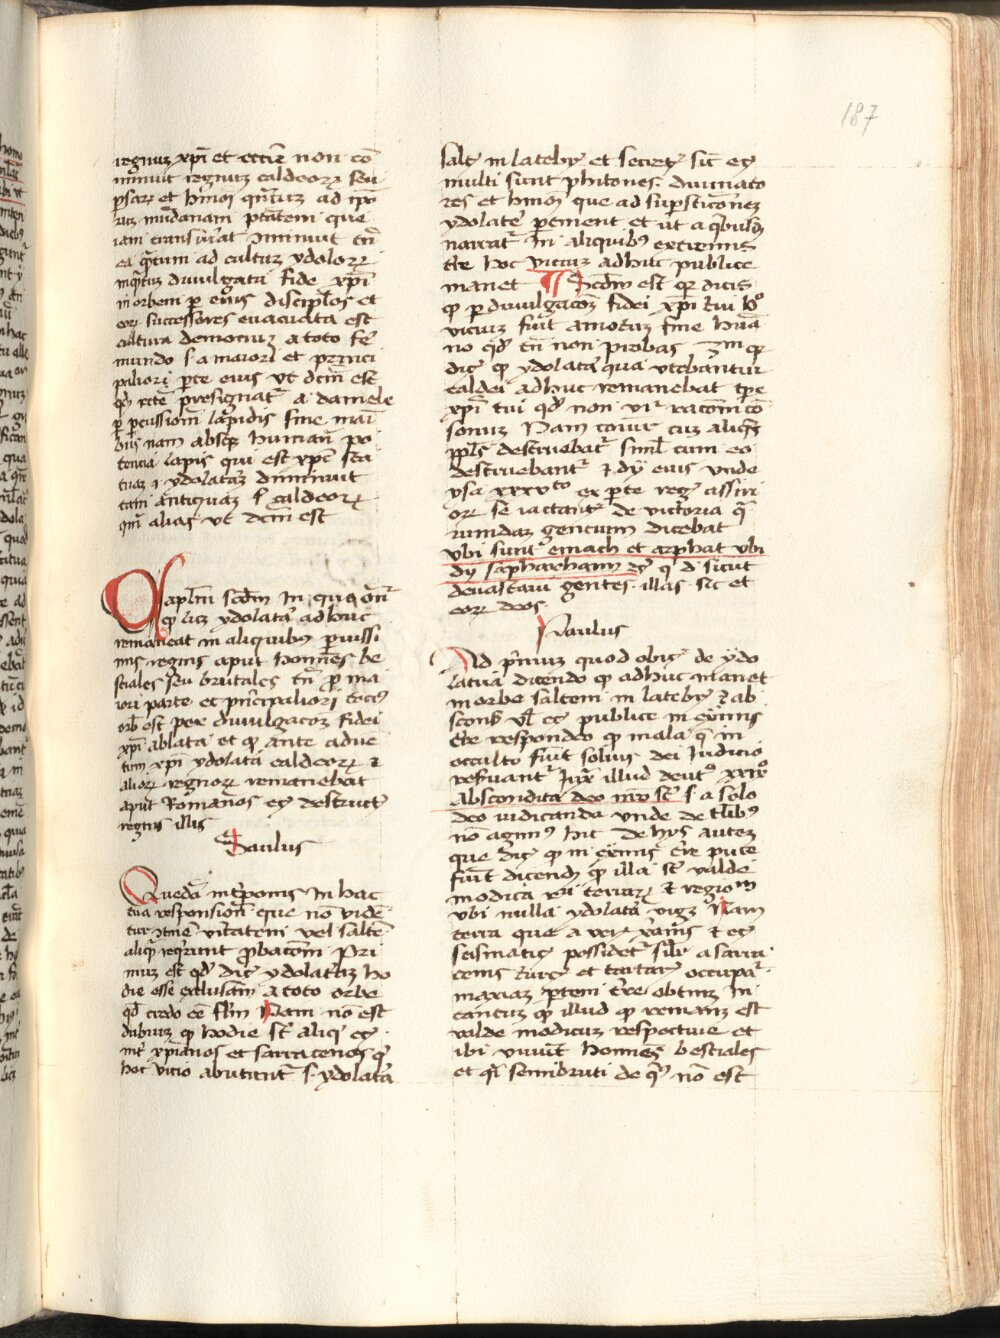 187
regnum xpi et eccie non co
minuit regnum caldeorum seu
persarum et hmoi quantum ad ipo
rum mundanam ptatem que
iam transiuerat Iminuit tn
ea quantum ad cultum ydolorum
inquantum diuulgata fide xpi
in orbem per eius discipulos et
eorum successores euacuata est
cultura demonum a toto fe
mundo s a maiori et princi
paliori parte eius vt dcm est
presignat a daniele
per percussionem lapidis sine mani
bus nam absque humana po
tencia lapis qui est xpc sta
tuam i ydolatriam diminuit
tam antiquam s caldeorum
quam alias vt dcm est
Capitulum scdm in quo
quod licet ydolatria adhuc
remaneat in aliquibus paruissi
mis regnis aput homines be
stiales seu brutales tn pro ma
iori parte et principaliori tocius
orbis est per diuulgacionem fidei
xpi ablata et quod ante aduen
tum xpi ydolatria caldeorum et
aliorum regnorum remanebat
aput Romanos eciam destructis
regnis illis
Paulus
Quedam interponis In hac
tua responsione que non viden
tur continere veritatem vel saltem
aliqua requirunt probacionem Pri
mum est quod dicis ydolatriam ho
die esse exclusam a toto orbe
quod credo esse falsum Nam non est
dubium quod hodie sunt aliqui eciam
inter xpianos et sarracenos qui
hoc vicio abutuntur s ydolatria
saltem in latebris et secretis sicut eciam
multi sunt phitones diuinato
res et hmoi que ad supersticionem
ydolatrie pertinent et ut a quibusdam
narratur In aliquibus extremis
terre hoc vicium adhuc publice
manet Secdm est quia dicis
quod per diuulgacionem fidei xpi tui hoc
vicium fuit amotum sine huma
no quod tn non probas 3m quia
dicis quod ydolatria qua vtebantur
caldei adhuc remanebat tempore
xpi tui quod non videtur racioni co
sonum Nam communiter cum aliquis
populus destruebatur simul cum eo
destruebantur et dij eius vnde
ysa xxxvto ex parte regis assiri
orum se iactantis de victoria qua
rumdam gencium dicebat
vbi sunt emach et arphat vbi
dij sapharuaym quasi d sicut
deuastaui gentes illas sic et
eorum deos
Paulus
Ad primum quod obicis de ydo
latria dicendo quod adhuc manet
in orbe saltem in latebris et ab
sconse vel eciam publice in extremis
terre respondeo quod mala que in
occulto fiunt solius dei Iudicio
reseruantur Iuxta illud deutro xxix
Abscondita deo nostro sunt s a solo
deo iudicanda vnde de talibus
non agimus hic De hijs autem
que dicis quod in extremis terre publice
fiunt dicendum quod illa sunt valde
modica terrarum et regionum
vbi nulla ydolatria viget Nam
terra que a veris xpianis et eciam
scismaticis possidetur similiter a sarra
cenis turcis et tartaris occupatur
maximam partem terre obtinet In
tantum quod illud quod remanet est
valde modicum respectiue et
ibi viuunt homines bestiales
et quasi semibruti de quibus non est